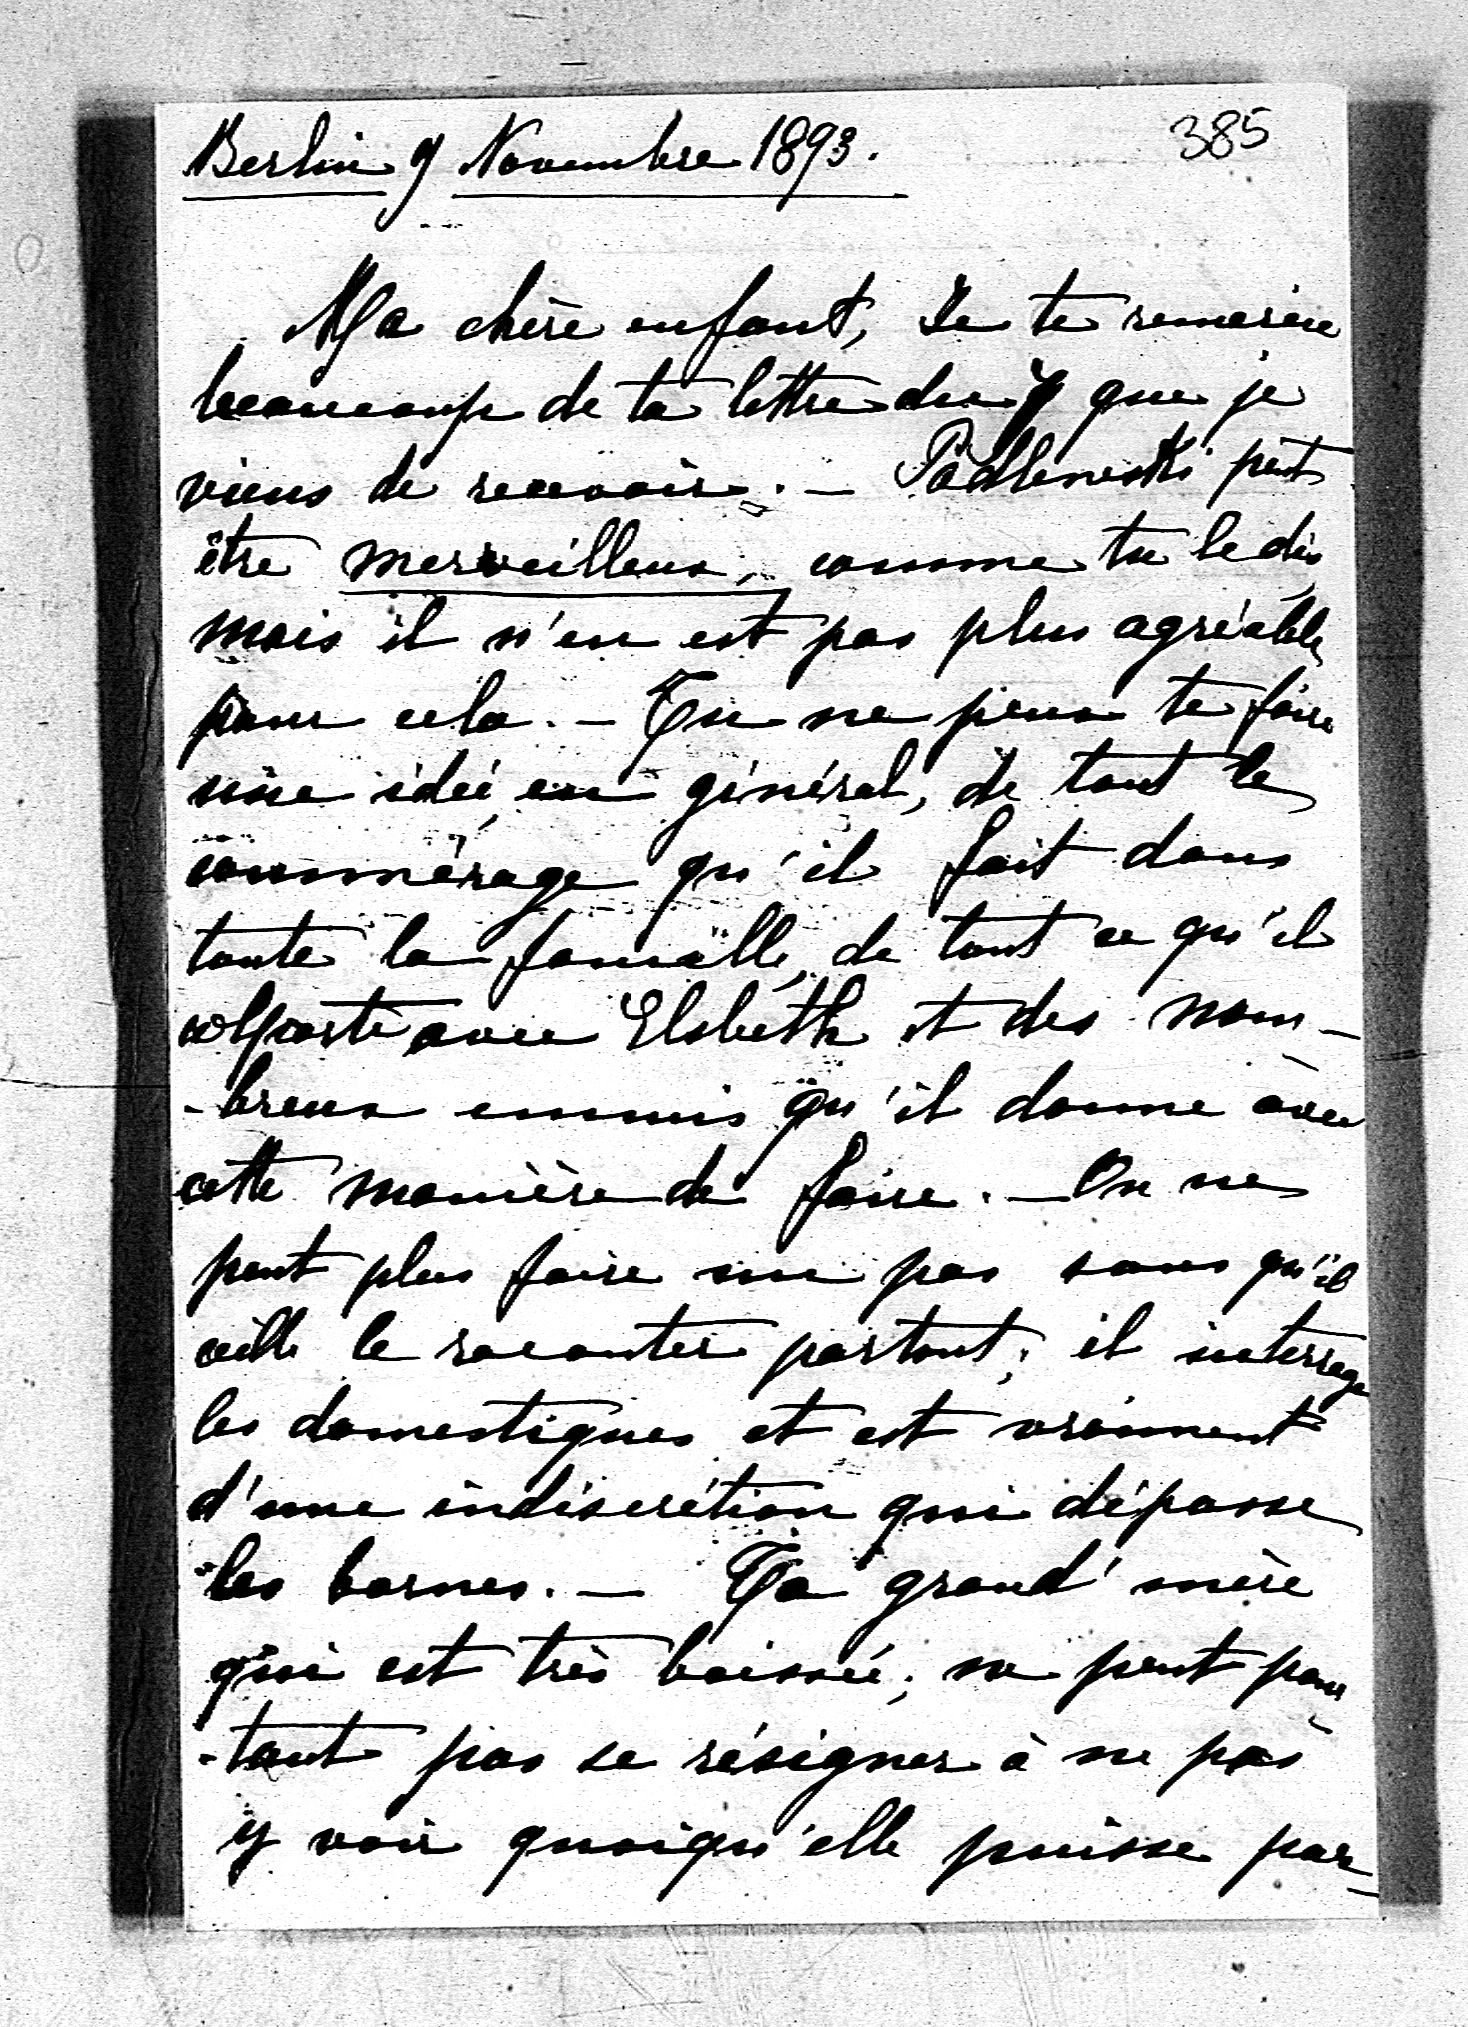 385
Berlin 9 Novembre 1893.
Ma chère enfant, Je te remercie
beaucoup de ta lettre du 7 que je
viens de recevoir. — Podlewski peut
être merveilleux, comme tu le dis
mais il n'en est pas plus agréable
pour cela. — Tu ne peux te faire
une idée, en général, de tout le
commérage qu'il fait dans
toute la famille, de tout ce qu'il
colporte avec Elsbeth et des nom-
-breux ennuis qu'il donne avec
cette manière de faire. — On ne
peut plus faire un pas sans qu'il
aille le raconter partout; il interroge
les domestiques et est vraiment
d'une indiscrétion qui dépasse
les bornes. — Ta grand'mère
qui est très baissée; ne peut pour
-tant pas se résigner à ne pas
y voir quoiqu'elle puisse par-